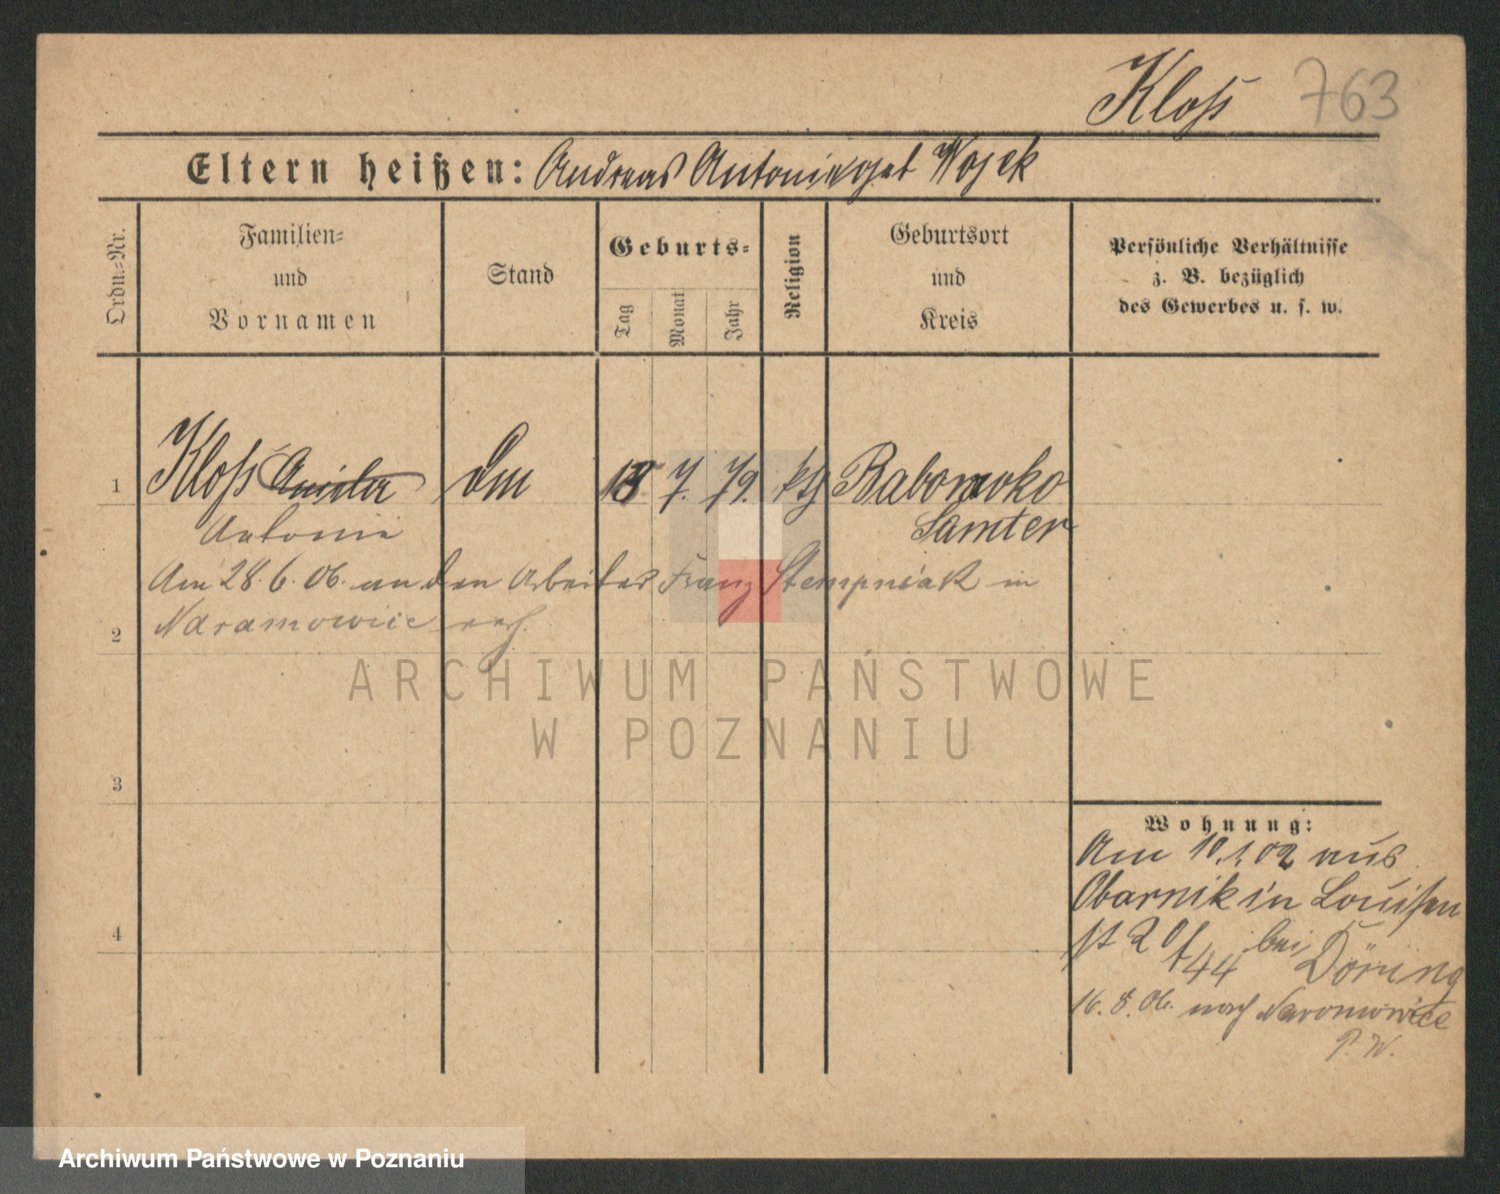 Kloß 763
Eltern heißen: Andreas Antonie geb Wojek
Ordn.=Nr.
Familien=
und
Vornamen
Stand
Geburts=
Tag
Monat
Jahr
Religion
Geburtsort
und
Kreis
Persönliche Verhältnisse
z. B. bezüglich
des Gewerbes u. s. w.
1 Kloß 7. 79. kth Baborowko
Antonie Samter
Am 28.6.06. an den Arbeiter Franz Stempniak in
Naramowice verh.
2
ARCHIWUM PAŃSTWOWE
W POZNANIU
3
Wohnung:
Am 10.1.02 aus
Obornik in Louisen
4
st 20 44 bei Döring
16.8.06. nach Naramowice
P. W.
Archiwum Państwowe w Poznaniu